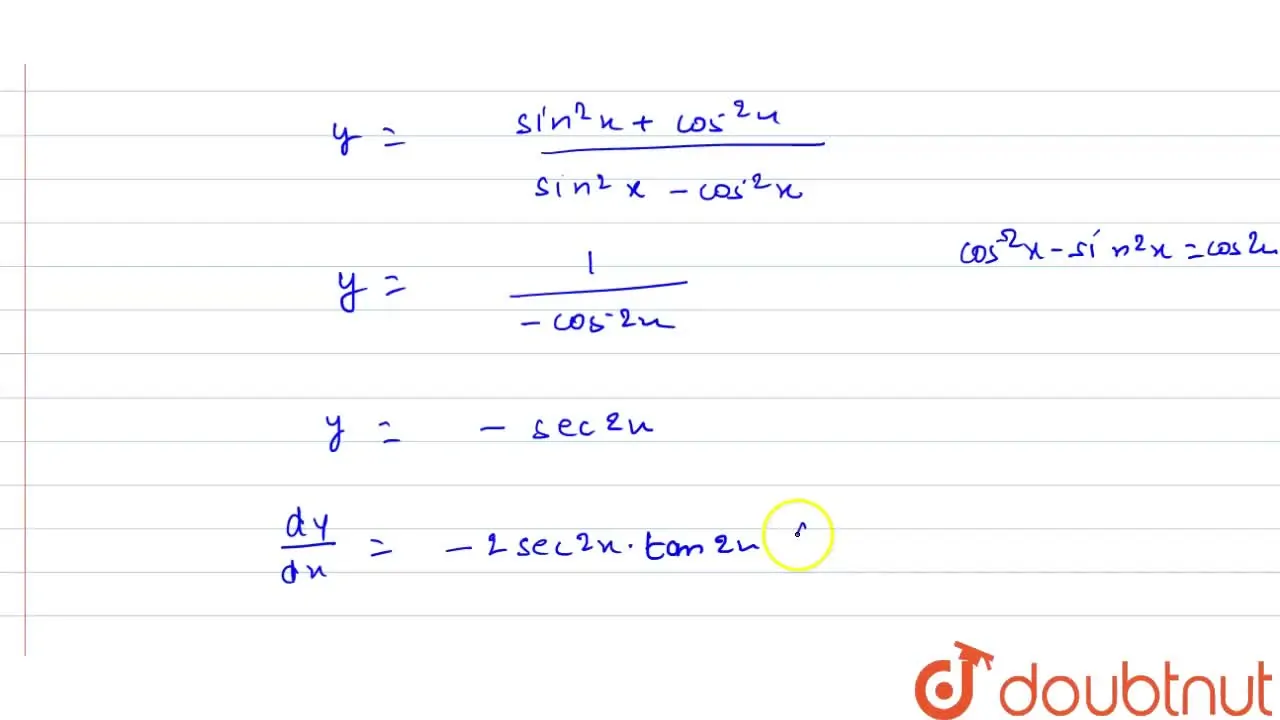 y = sin²x + cos²x
sin²x - cos²x
cos²x - sin²x = cos2x
y = 1
- cos2x
y = - sec2x
dy
dx = - 2 sec2x · tan2x
doubtnut